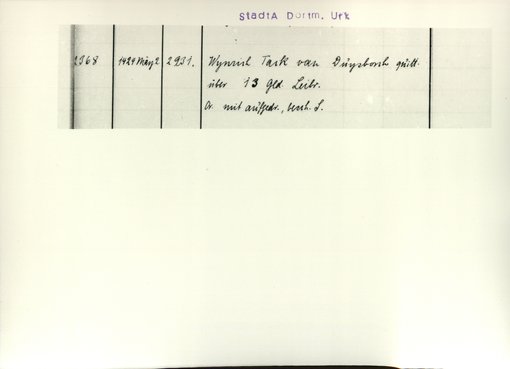 StadtA Dortm. Urk
2368 1424 März 2 2931. Wynrich Tack van Duysborch quitt.
über 13 Gld Leibr.
Or. mit aufgedr., besch. S.